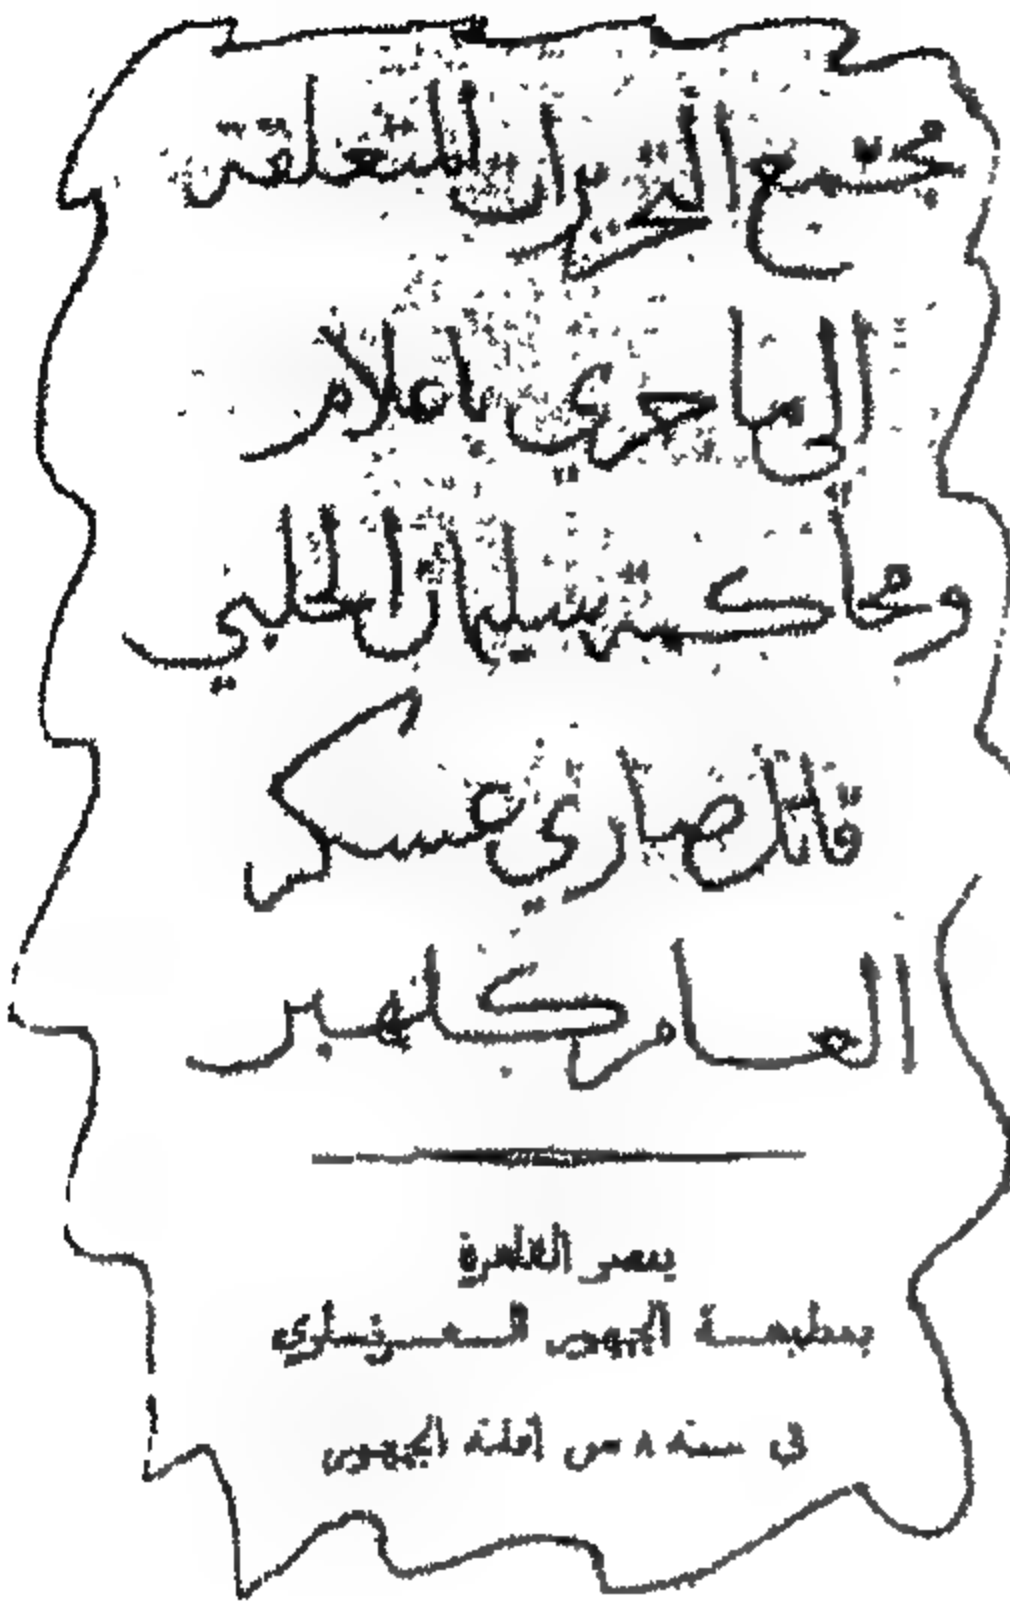 مجمع التحريرات المتعلقة
الى ما جرى باعلام
ومحاكمة سليمان الحلبي
قاتل صاري عسكر
العام كلهبر
بمصر القاهرة
بمطبعة الجمهور الفرنساوي
في سنة ٨ من اقامة الجمهور